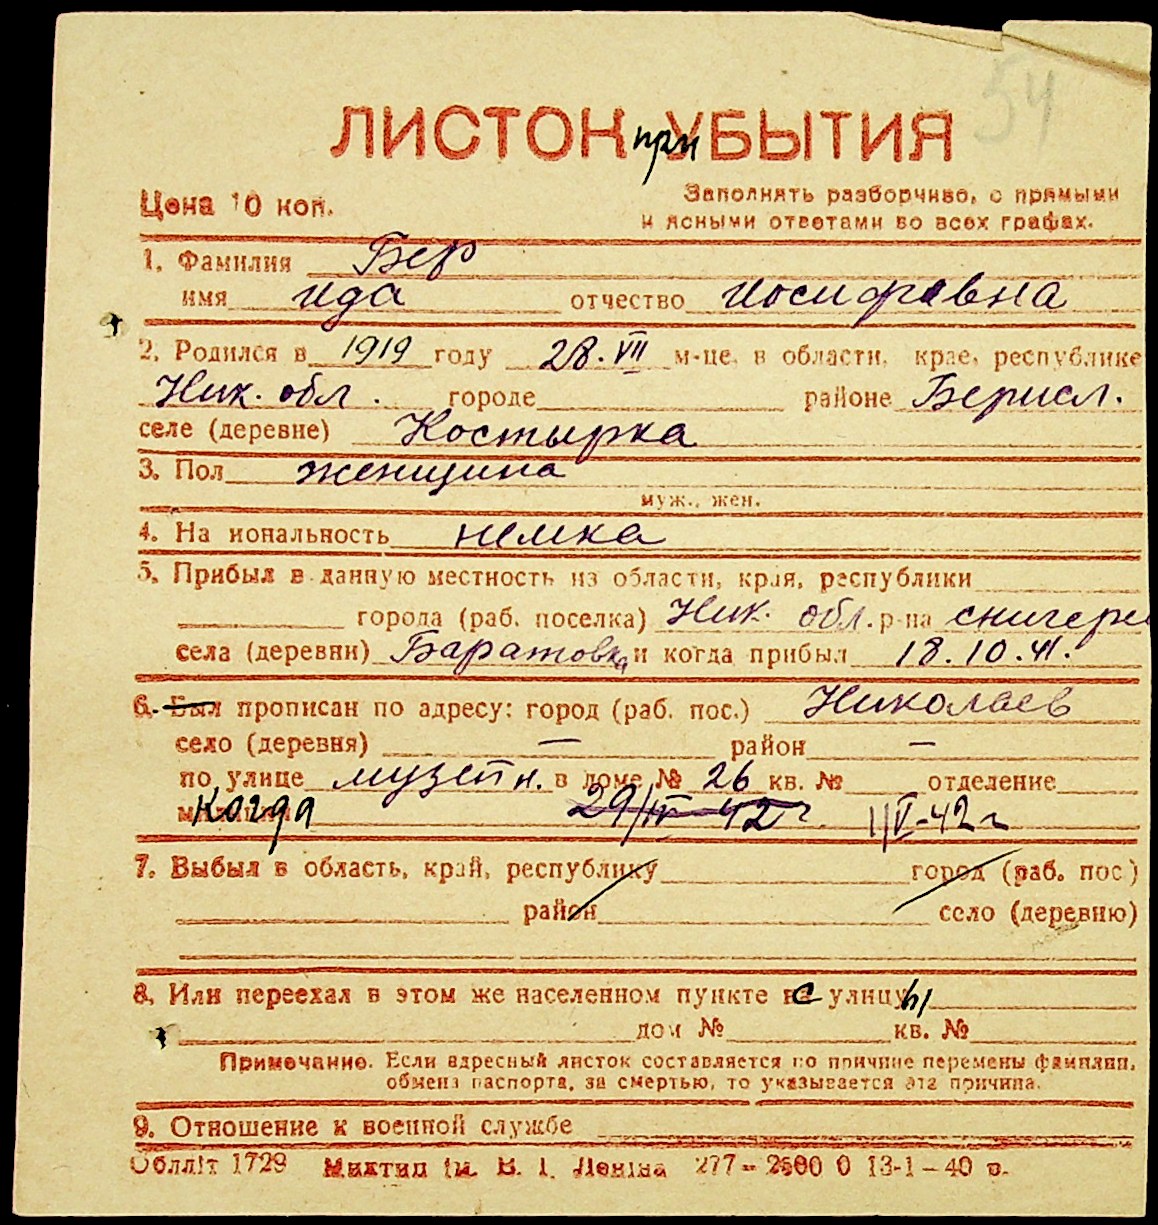 54
ЛИСТОК при УБЫТИЯ
Цена 10 коп.
Заполнять разборчиво, с прямыми
и ясными ответами во всех графах.
1. Фамилия Бер
имя Ида отчество Иосифовна
2. Родился в 1919 году 28. VII м-це, в области, крае, республике
Ник. обл. городе районе Берисл.
селе (деревне) Костырка
3. Пол женщина
муж., жен.
4. На иональность немка
5. Прибыл в данную местность из области, края, республики
города (раб. поселка) Ник. обл. р-на снигире
села (деревни) Баратовка и когда прибыл 18.10.41.
6. Был прописан по адресу: город (раб. пос.) Николаев
село (деревня) — район —
по улице музейн. в доме № 26 кв. № отделение
милиции Когда 29/IV-42 г. 1/V-42 г
7. Выбыл в область, край, республику город (раб. пос.)
район село (деревню)
8. Или переехал в этом же населенном пункте с улицы
дом № кв. №
Примечание. Если адресный листок составляется по причине перемены фамилии,
обмена паспорта, за смертью, то указывается эта причина.
9. Отношение к военной службе
Обллiт 1729 Миктип iм. В. I. Ленiна 277-2500 0 13-1-40 р.